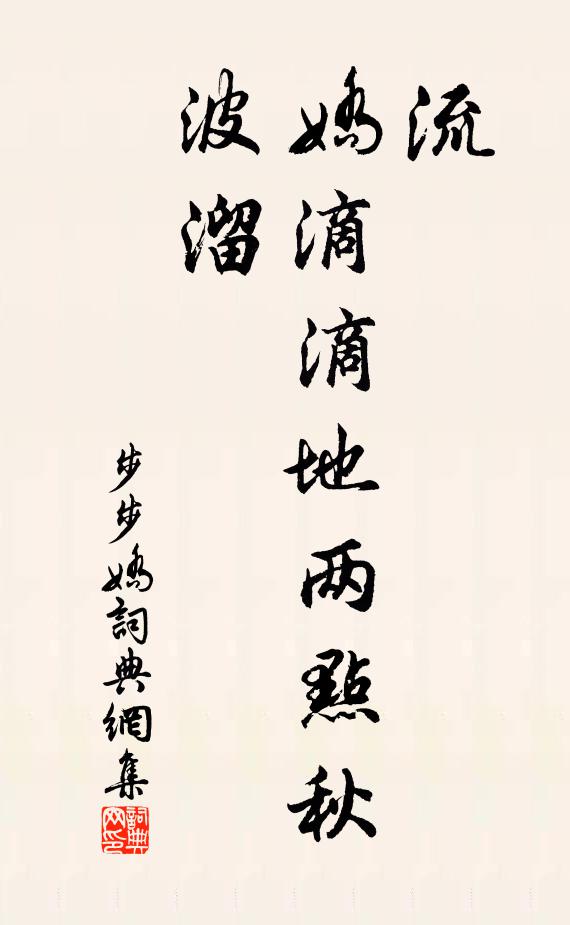 流
嬌滴滴地两點秋
波溜
步步嬌詞典網集
詞典
网印